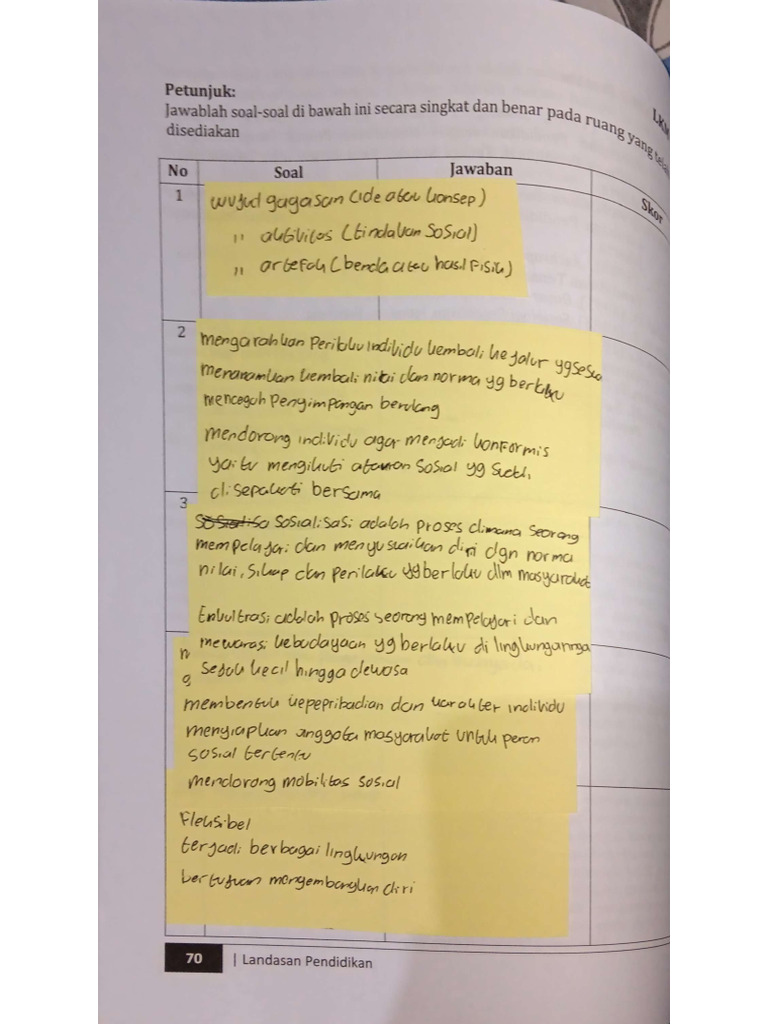 Petunjuk:
Jawablah soal-soal di bawah ini secara singkat dan benar pada ruang yang telah
disediakan
LKM
No Soal Jawaban Skor
1 wujud gagasan (ide atau konsep)
" aktivitas (tindakan sosial)
" artefak (benda atau hasil fisik)
2 mengarahkan perilaku individu kembali ke jalur yg sesuai
menanamkan kembali nilai dan norma yg berlaku
mencegah penyimpangan berulang
mendorong individu agar menjadi konformis
yaitu mengikuti aturan sosial yg sudh,
disepakati bersama
3 sosialisasi adalah proses dimana seorang
mempelajari dan menyusaikan diri dgn norma
nilai, sikap dan perilaku yg berlaku dlm masyarakat
Enkultrasi adalah proses seorang mempelajari dan
mewarasi kebudayaan yg berlaku di lingkungannga
sejak kecil hingga dewasa
membentuk kepepribadian dan karakter individu
menyiapkan anggota masyarakat untuk peran
sosial tertentu
mendorong mobilitas sosial
Fleksibel
terjadi berbagai lingkungan
bertujuan mengembangkan diri
70 | Landasan Pendidikan